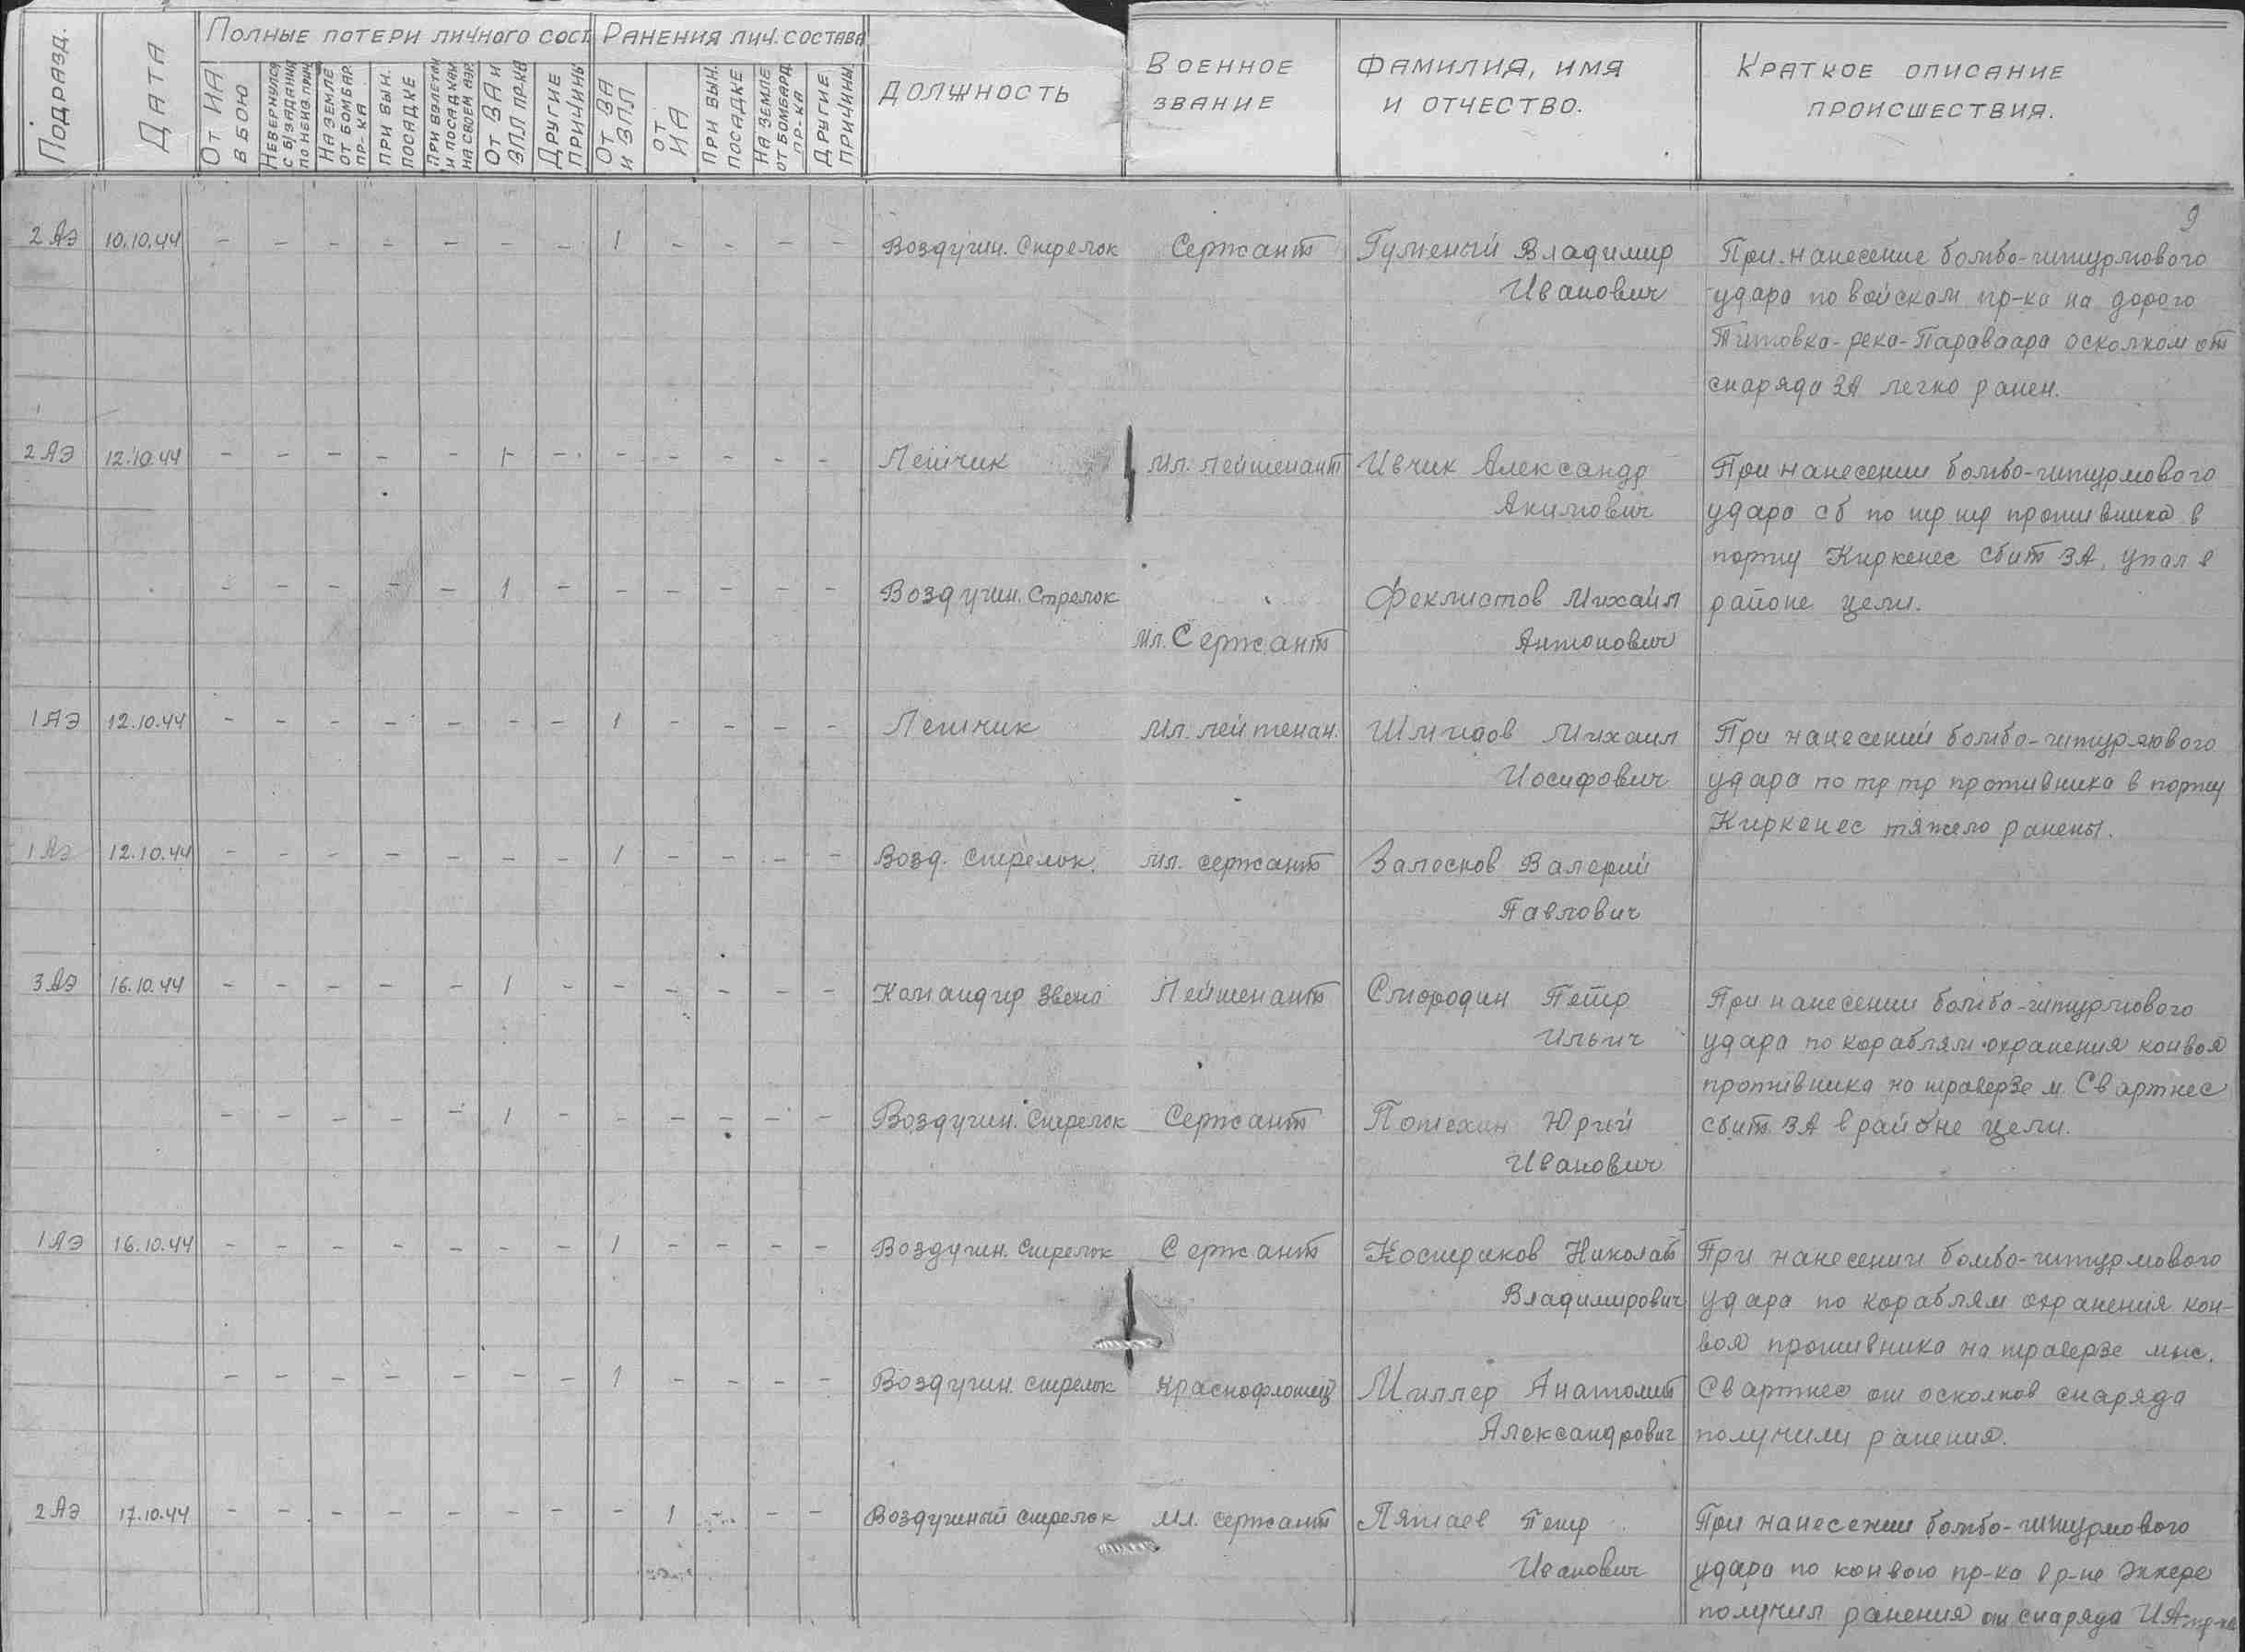 Подразд.
Дата
Полные потери личного сост
Ранения лич. состава
От ИА в бою
Невернулся с б/задания по неизв. прич
На земле от бомбар. пр-ка
При вын. посадке
При взлетах и посадках на своем аэр.
От ЗА и ЗПЛ пр-ка
Другие причины
От ЗА и ЗПЛ
От ИА
При вын. посадке
На земле от бомбард. пр-ка
Другие причины
Должность
Военное звание
Фамилия, имя и отчество.
Краткое описание происшествия.
9
2 АЭ 10.10.44 - - - - - - - 1 - - - - Воздушн. Стрелок Сержант Гуменый Владимир При нанесение бомбо-штурмового
Иванович удара по войскам пр-ка на дорого
Титовка-река-Параваара осколком от
снаряда ЗА легко ранен.
2 АЭ 12.10.44 - - - - - 1 - - - - - - Летчик Мл. Лейтенант Ивчик Александр При нанесении бомбо-штурмового
Акимович удара сб по тр тр противника в
порту Киркенес сбит ЗА, упал в
- - - - - 1 - - - - - - Воздушн. Стрелок Феклистов Михаил районе цели.
Мл. Сержант Антонович
1 АЭ 12.10.44 - - - - - - - 1 - - - - Летчик Мл. лейтенан. Шмидов Михаил При нанесении бомбо-штурмового
Иосифович удара по тр тр противника в порту
Киркенес тяжело ранены.
1 АЭ 12.10.44 - - - - - - - 1 - - - - Возд. Стрелок. Мл. сержант Залесков Валерий
Павлович
3 АЭ 16.10.44 - - - - - 1 - - - - - - Командир Звена Лейтенант Смородин Петр При нанесении бомбо-штурмового
Ильич удара по кораблям охранения конвоя
противника на траверзе м. Свартнес
- - - - - 1 - - - - - - Воздушн. Стрелок Сержант Потехин Юрий сбит ЗА в районе цели.
Иванович
1 АЭ 16.10.44 - - - - - - - 1 - - - - Воздушн. Стрелок Сержант Костриков Николай При нанесении бомбо-штурмового
Владимирович удара по кораблям охранения кон-
воя противника на траверзе мыс.
- - - - - - - 1 - - - - Воздушн. стрелок Краснофлотец Миллер Анатолий Свартнес от осколков снаряда
Александрович получили ранения.
2 АЭ 17.10.44 - - - - - - - - 1 - - - Воздушный стрелок Мл. сержант Лятаев Петр При нанесении бомбо-штурмового
Иванович удара по конвою пр-ка в р-не Эккере
получил ранения от снаряда ИА пр-ка